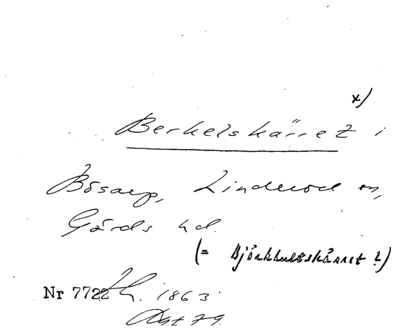 x)
Berkelskärret i
Bosarp, Linderöd sn,
Gärds hd.
(= Björkhultskärret?)
Nr 7722 1863
Akt 79